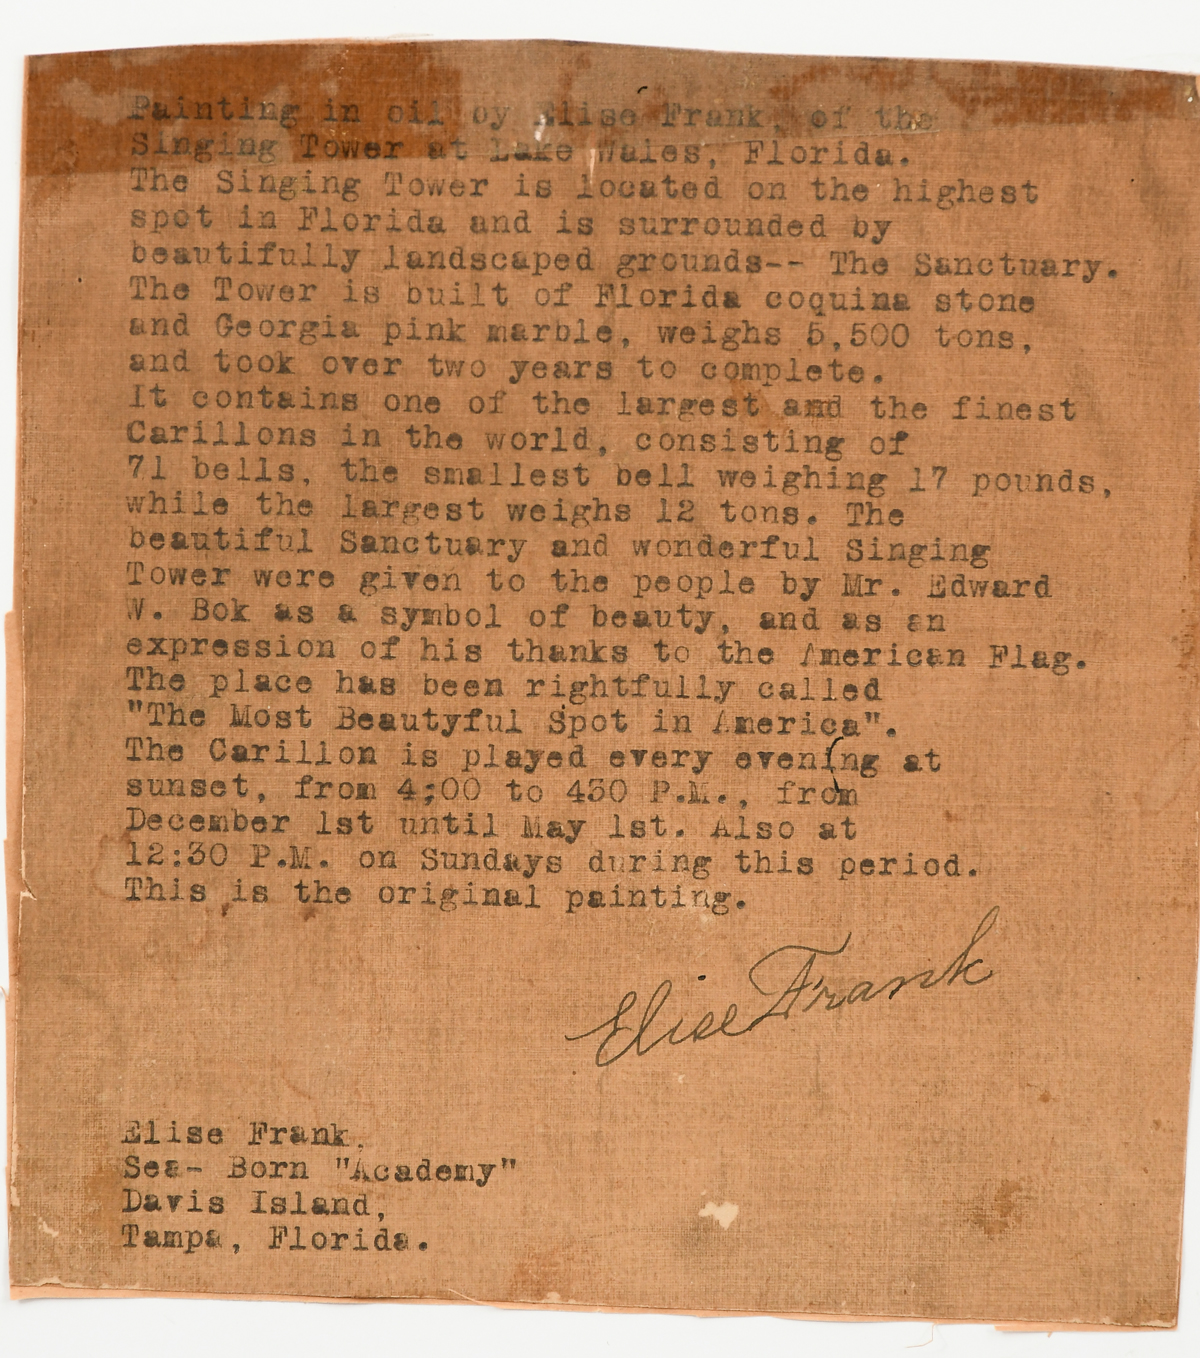 Painting in oil by Elise Frank, of the
Singing Tower at Lake Wales, Florida.
The Singing Tower is located on the highest
spot in Florida and is surrounded by
beautifully landscaped grounds-- The Sanctuary.
The Tower is built of Florida coquina stone
and Georgia pink marble, weighs 5,500 tons,
and took over two years to complete.
It contains one of the largest and the finest
Carillons in the world, consisting of
71 bells, the smallest bell weighing 17 pounds,
while the largest weighs 12 tons. The
beautiful Sanctuary and wonderful Singing
Tower were given to the people by Mr. Edward
W. Bok as a symbol of beauty, and as an
expression of his thanks to the American Flag.
The place has been rightfully called
"The Most Beautyful Spot in America".
The Carillon is played every evening at
sunset, from 4;00 to 430 P.M., from
December 1st until May 1st. Also at
12:30 P.M. on Sundays during this period.
This is the original painting.
Elise Frank
Elise Frank,
Sea- Born "Academy"
Davis Island,
Tampa, Florida.